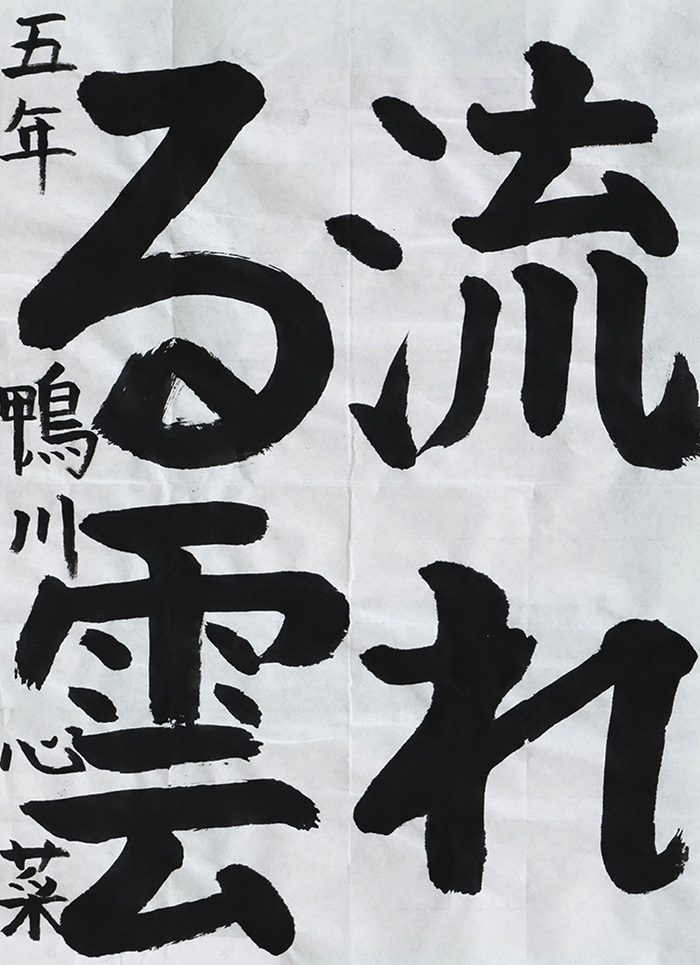 流れ
る雲
五年 鴨川心菜